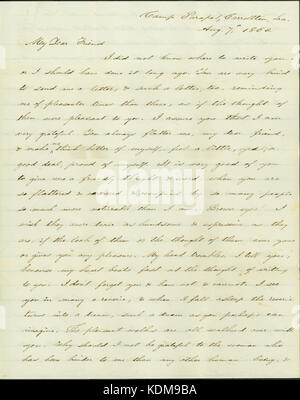 Camp Parapet, Carrollton, La.
Aug. 7th 1862.
My Dear Friend
I did not know where to write you,
or I should have done it long ago. You are very kind
to send me a letter, & such a letter, too, reminding
me of pleasanter times than these, as if the thought of
them were pleasant to you. I assure you that I am
very grateful. You always flatter me, my dear friend,
& make me think better of myself, not a little, yes, a
good deal, proud of myself. It is very good of you
to give me a friend, at all when you are
so flattered & by so many people
so much more noticeable than I am. Brown eyes! I
wish they were twice as handsome & expressive as they
are, if the look of them or the thought of them can give
or gives you any pleasure. My hand trembles, I tell you,
because my heart beats fast at the thought of writing
to you. I don't forget you & have not & cannot. I see
you in many a reverie, & when I fall asleep the reverie
turns into a dream, such a dream as you perhaps can
imagine. The pleasant walks are all walked over with
you. Why should I not be grateful to the woman who
has been kinder to me than any other human being, &
alamy
alamy stock photo
KDM9BA